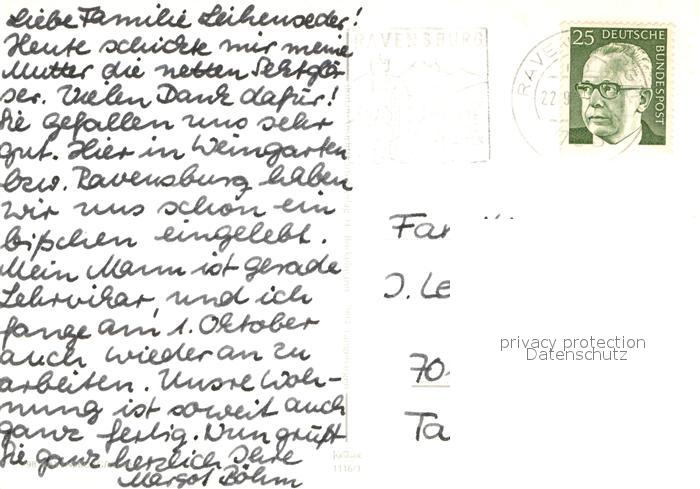 Liebe Familie Leihenseder!
Heute schickte mir meine
Mutter die netten Sektglä-
ser. Vielen Dank dafür!
Sie gefallen uns sehr
gut. Hier in Weingarten
bzw. Ravensburg haben
wir uns schon ein
bißchen eingelebt.
Mein Mann ist gerade
Lehrvikar, und ich
fange am 1. Oktober
auch wieder an zu
arbeiten. Unsre Woh-
nung ist soweit auch
ganz fertig. Nun grüßt
Sie ganz herzlich Ihre
Margot Böhm
RAVENSBURG
RAVE
22.9
25 DEUTSCHE
BUNDESPOST
Fam
J. Le
70
Ta
privacy protection
Datenschutz
1116/1